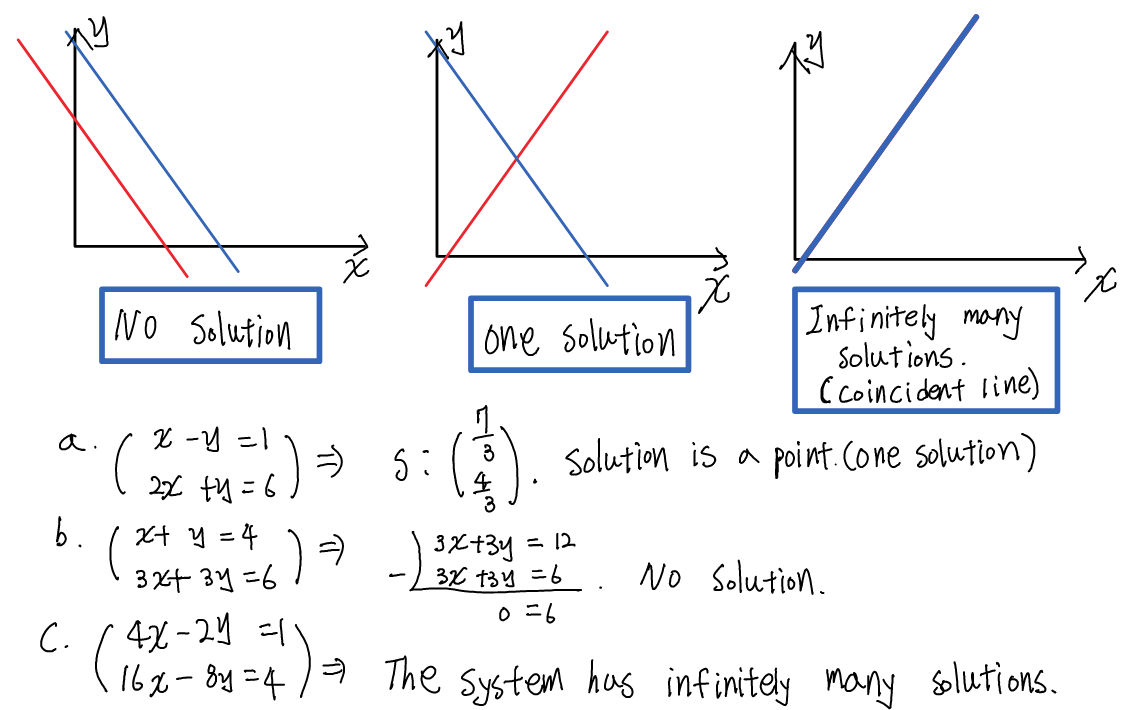 y
x
No Solution
y
x
one solution
y
x
Infinitely many
solutions.
(coincident line)
a. ( x - y = 1
2x + y = 6 ) ⇒ S : ( 7/3
4/3 ) . Solution is a point. (one solution)
b. ( x + y = 4
3x + 3y = 6 ) ⇒ -) 3x + 3y = 12
3x + 3y = 6
0 = 6 . No Solution.
C. ( 4x - 2y = 1
16x - 8y = 4 ) ⇒ The system has infinitely many solutions.